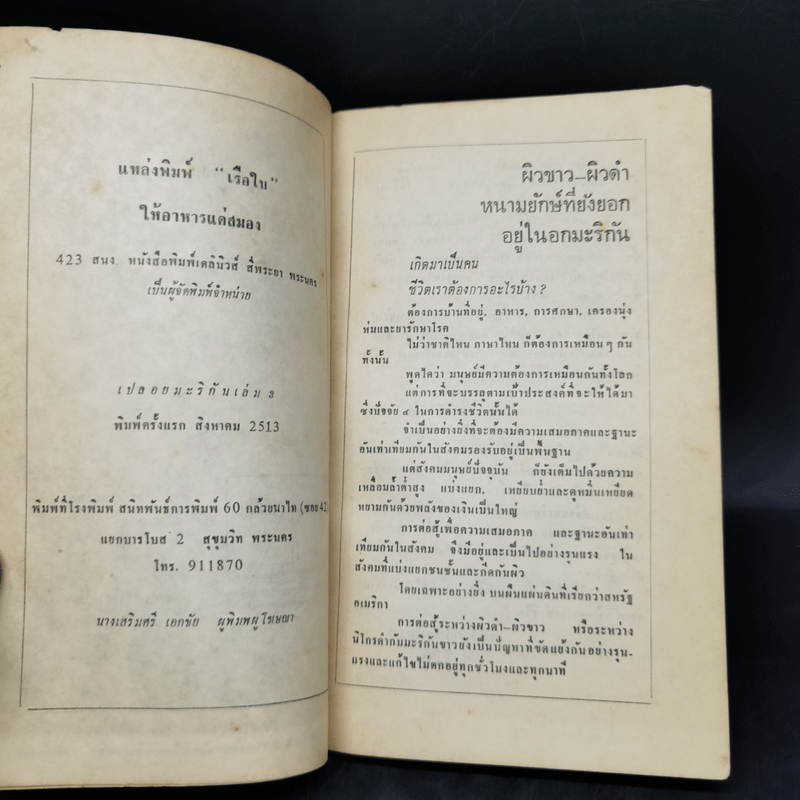 แหล่งพิมพ์ “เรือใบ”
ให้อาหารแด่สมอง
423 สนง. หนังสือพิมพ์เดลินิวส์ สี่พระยา พระนคร
เป็นผู้จัดพิมพ์จำหน่าย
เปลือยมะริกันเล่ม ๒
พิมพ์ครั้งแรก สิงหาคม 2513
พิมพ์ที่โรงพิมพ์ สนิทพันธ์การพิมพ์ 60 กล้วยน้ำไท (ซอย 42
แยกบารโบส 2 สุขุมวิท พระนคร
โทร. 911870
นางเสริมศรี เอกชัย ผู้พิมพ์ผู้โฆษณา
ผิวขาว–ผิวดำ
หนามยักษ์ที่ยังยอก
อยู่ในอกมะริกัน
เกิดมาเป็นคน
ชีวิตเราต้องการอะไรบ้าง ?
ต้องการบ้านที่อยู่, อาหาร, การศึกษา, เครื่องนุ่ง
ห่มและยารักษาโรค
ไม่ว่าชาติไหน ภาษาไหน ก็ต้องการเหมือนๆ กัน
ทั้งนั้น
พูดได้ว่า มนุษย์มีความต้องการเหมือนกันทั้งโลก
แต่การที่จะบรรลุตามเป้าประสงค์ที่จะให้ได้มา
ซึ่งปัจจัย ๔ ในการดำรงชีวิตนั้นได้
จำเป็นอย่างยิ่งที่จะต้องมีความเสมอภาคและฐานะ
อันเท่าเทียมกันในสังคมรองรับอยู่เป็นพื้นฐาน
แต่สังคมมนุษย์ปัจจุบัน ก็ยังเต็มไปด้วยความ
เหลื่อมล้ำต่ำสูง แบ่งแยก, เหยียบย่ำและดูหมิ่นเหยียด
หยามกันด้วยพลังของเงินเป็นใหญ่
การต่อสู้เพื่อความเสมอภาค และฐานะอันเท่า
เทียมกันในสังคม จึงมีอยู่และเป็นไปอย่างรุนแรง ใน
สังคมที่แบ่งแยกชนชั้นและกีดกันผิว
โดยเฉพาะอย่างยิ่ง บนผืนแผ่นดินที่เรียกว่าสหรัฐ
อเมริกา
การต่อสู้ระหว่างผิวดำ–ผิวขาว หรือระหว่าง
นิโกรดำกับมะริกันขาวยังเป็นปัญหาที่ขัดแย้งกันอย่างรุน-
แรงและแก้ไขไม่ตกอยู่ทุกชั่วโมงและทุกนาที